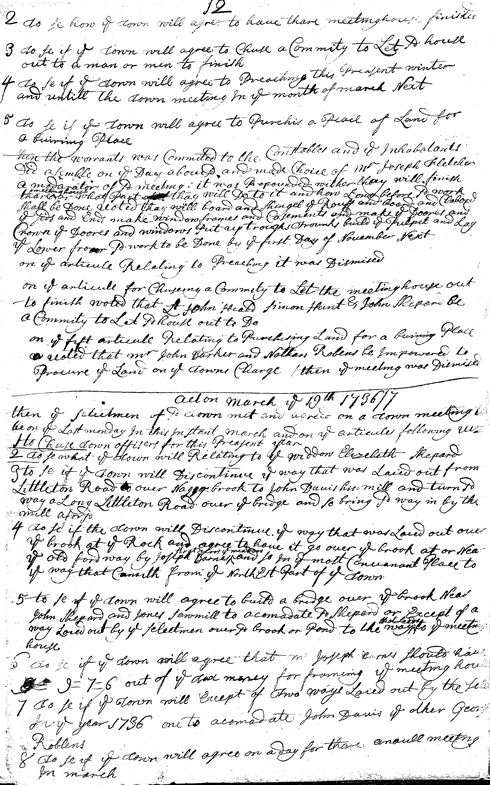 12
2 To se how yͤ Town will agree to have thare meetinghouse finished
3 To se if yͤ Town will agree to Chuse a Commity to Let Sᵈ house
out to a man or men to finish
4 To se if yͤ Town will agree to Preaching this Preasent winter
and untill the Town meeting In yͤ month of march Next
5 To se if yͤ Town will agree to Purchis a Peace of Land for
a buiring Place
then the warants was Commited to the Constables and yͤ Inhabatants
Did asimble on yͤ Day aboud and made Choice of Mʳ Joseph Fletcher
a moderator of Sᵈ meeting: it was Propounded whither thay will finish
thay will Do to it and how Long before Sᵈ work
shall be Done voted thay will board and Shingel yͤ Rouf and board and Clabord
yͤ Sids and Ends make window frames and Casements and make yͤ Doores and
Crown yͤ Doores and windows Put up troughs Round build yͤ Pulpet and Lay
yͤ Lower floor Sᵈ work to be Done by yͤ first Day of November Next
on yͤ articule Relating to Preaching it was Dismised
on yͤ articule for Chuseing a Commity to Let the meetinghouse out
to finish voted that John Heald Simon Hunt & John Shepard be
a Commity to Let Sᵈ house out to Do
on yͤ fift articule Relating to Purchesing Land for a buiring Place
voted that mʳ John Barker and Nathan Robens be Impowered to
Procure yͤ Land on yͤ Towns Charge / then yͤ meeting was Dismised
Acton March yͤ 19th 1736/7
then yͤ Selectmen of Sᵈ Town met and agreed on a town meeting to
be on yͤ Last monday In this Instant march and on yͤ articules following viz
1 to Chuse Town offisers for this Preasent year
2 To se what yͤ Town will Relating to yͤ widdow Elezebeth Shepard
3 To se if yͤ Town will Discontinue yͤ way that was Laied out from
Littleton Road over Nagog brook to John Davis his mill and turn Sᵈ
way a Long Littleton Road over yͤ bridge and so bring Sᵈ way in by the
mill
4 To se if the Town will Discontinue yͤ way that was Laied out over
yͤ brook at yͤ Rock and agree to have it go over yͤ brook at or Near
yͤ old ford way by Joseph Barnes and so In yͤ most Convenant Place to
yͤ way that Cometh from yͤ North Est Part of yͤ Town
5 to se if yͤ Town will agree to build a bridge over yͤ brook Near
John Shepard and Jones Sawmill to acomadate Sᵈ Shepard or Except of a
way Laied out by yͤ Selectmen over Sᵈ brook or Pond to the way to yͤ meeting
house
6 To se if yͤ Town will agree that mʳ Joseph Barnes Should have
9=7=6 out of yͤ money for frameing yͤ meeting house
7 To se if yͤ Town will Except of Two ways Laied out by the Selectmen
In yͤ year 1736 one to acomadate John Davis yͤ other George
Robens
8 To se if yͤ Town will agree on a day for thare anaull meeting
In march